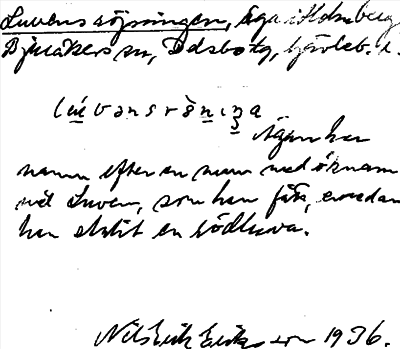 Luvens röjningen, äga i Holmberg
Bjuråkers sn, Delsbo tg, Gävleb. l.
lúvənsrö̀nıŋa
Ägan har
namn efter en man med öknam-
net Luven, som han fått, emedan
han slitit en rödluva.
Nils Erik Eriksson 1936.